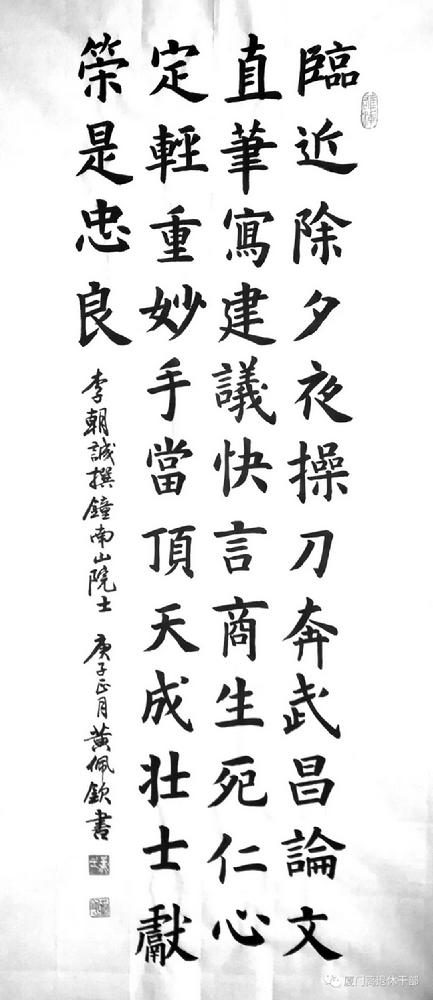 臨近除夕夜操刀奔武昌論文
直筆寫建議快言商生死仁心
定輕重妙手當頂天成壯士獻
策是忠良
李朝誠撰鐘南山院士 庚子正月黃佩欽書
厦门离退休干部